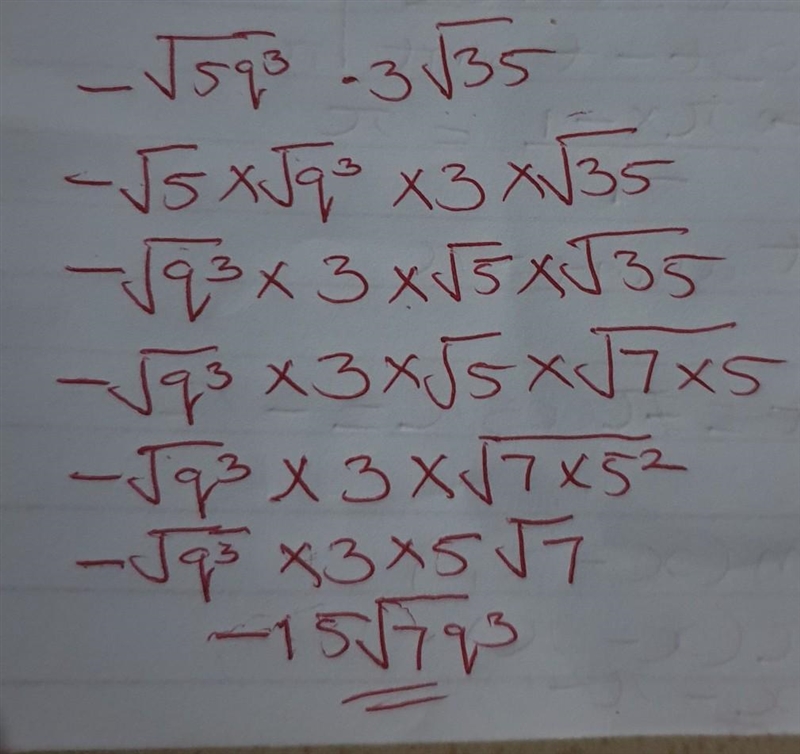 -√5q³ · 3√35
-√5 × √q³ × 3 × √35
-√q³ × 3 × √5 × √35
-√q³ × 3 × √5 × √7×5
-√q³ × 3 × √7×5²
-√q³ × 3 × 5√7
-15√7q³